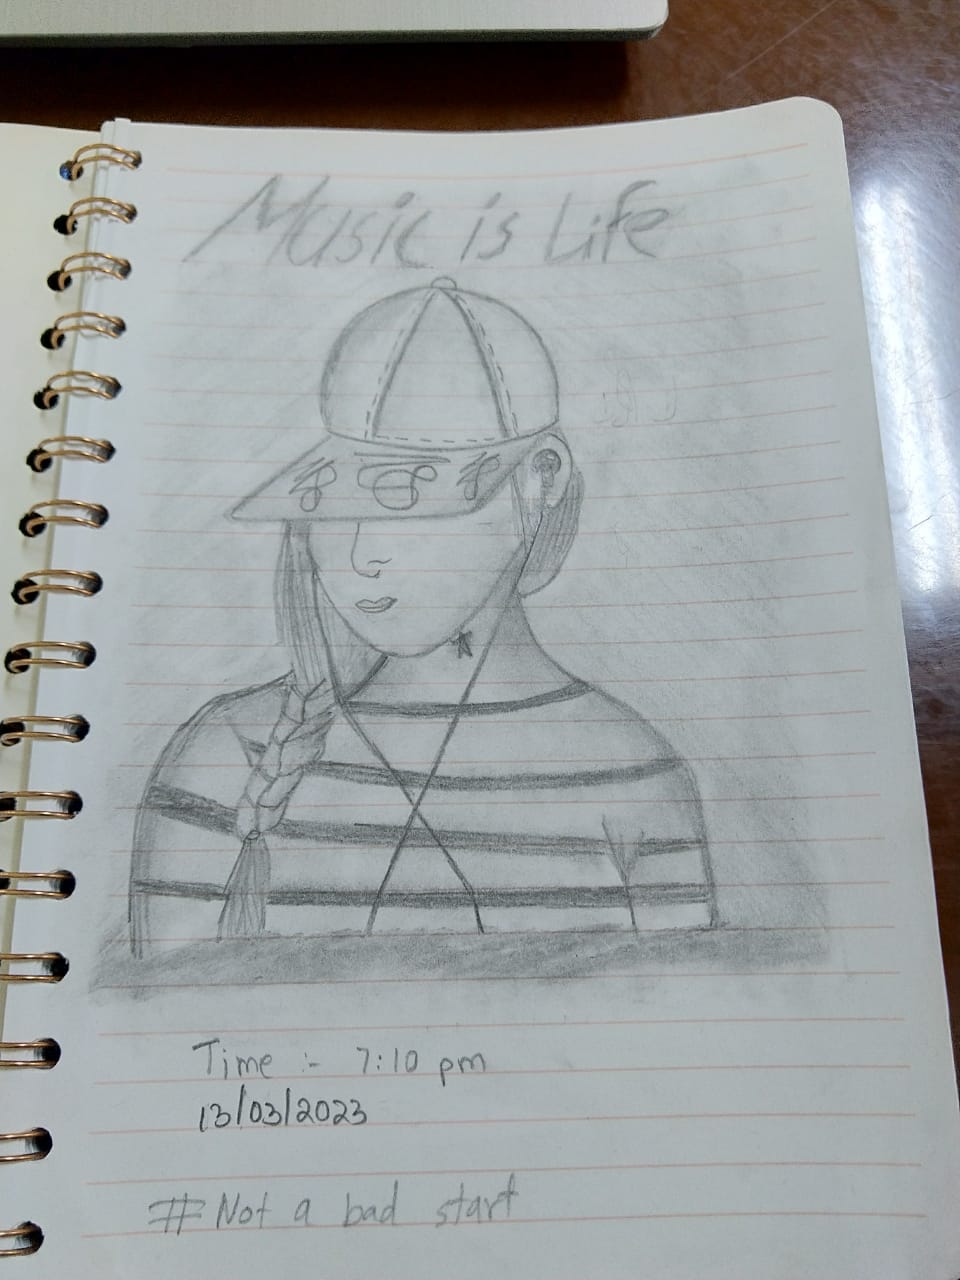 Music is Life
Time :- 7:10 pm
13/03/2023
#Not a bad start